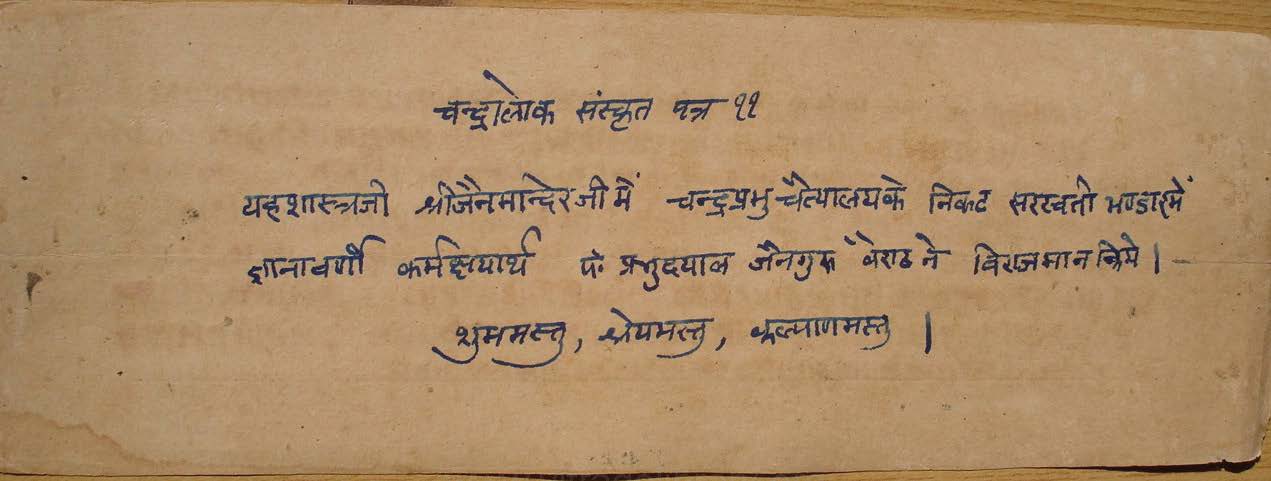 चन्द्रालोक संस्कृत पत्र ११
यह शास्त्रजी श्री जैन मन्दिर जी में चन्द्रप्रभु चैत्यालय के निकट सरस्वती भण्डार में
ज्ञानावर्णी कर्मक्षयार्थ पं॰ प्रभुदयाल जैनगुरू वैराठ ने विराजमान किये।
शुभमस्तु, श्रेयमस्तु, कल्याणमस्तु।